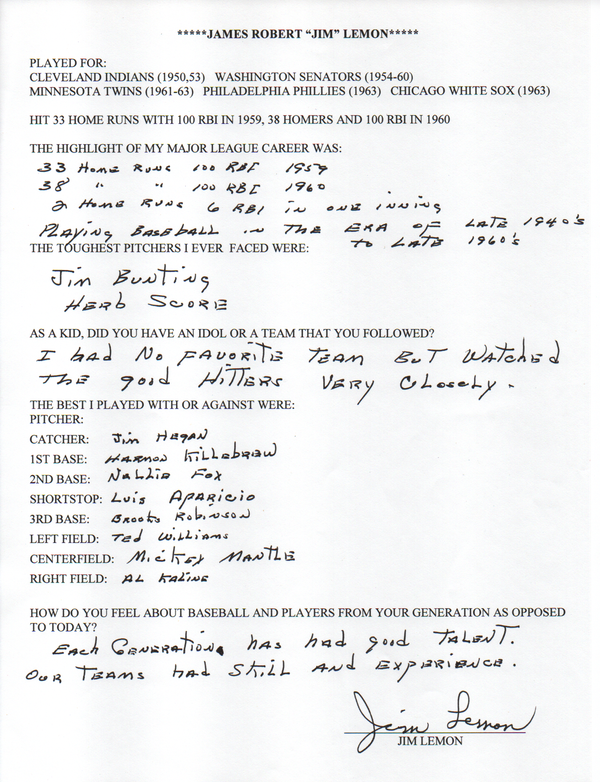 *****JAMES ROBERT “JIM” LEMON*****
PLAYED FOR:
CLEVELAND INDIANS (1950,53) WASHINGTON SENATORS (1954-60)
MINNESOTA TWINS (1961-63) PHILADELPHIA PHILLIES (1963) CHICAGO WHITE SOX (1963)
HIT 33 HOME RUNS WITH 100 RBI IN 1959, 38 HOMERS AND 100 RBI IN 1960
THE HIGHLIGHT OF MY MAJOR LEAGUE CAREER WAS:
33 Home Runs 100 RBI 1959
38 " " 100 RBI 1960
2 Home Runs 6 RBI in one inning
Playing Baseball in the ERA of LATE 1940's
to LATE 1960's
THE TOUGHEST PITCHERS I EVER FACED WERE:
Jim Bunting
Herb Score
AS A KID, DID YOU HAVE AN IDOL OR A TEAM THAT YOU FOLLOWED?
I had No FAVORITE TEAM BUT WATCHED
THE good HITTERS VERY CLOSELY.
THE BEST I PLAYED WITH OR AGAINST WERE:
PITCHER:
CATCHER: Jim Hegan
1ST BASE: Harmon Killebrew
2ND BASE: Nellie Fox
SHORTSTOP: Luis Aparicio
3RD BASE: Brooks Robinson
LEFT FIELD: Ted Williams
CENTERFIELD: Mickey Mantle
RIGHT FIELD: AL Kaline
HOW DO YOU FEEL ABOUT BASEBALL AND PLAYERS FROM YOUR GENERATION AS OPPOSED
TO TODAY?
Each Generation has had good TALENT.
OUR TEAMS had SKILL AND EXPERIENCE.
Jim Lemon
JIM LEMON